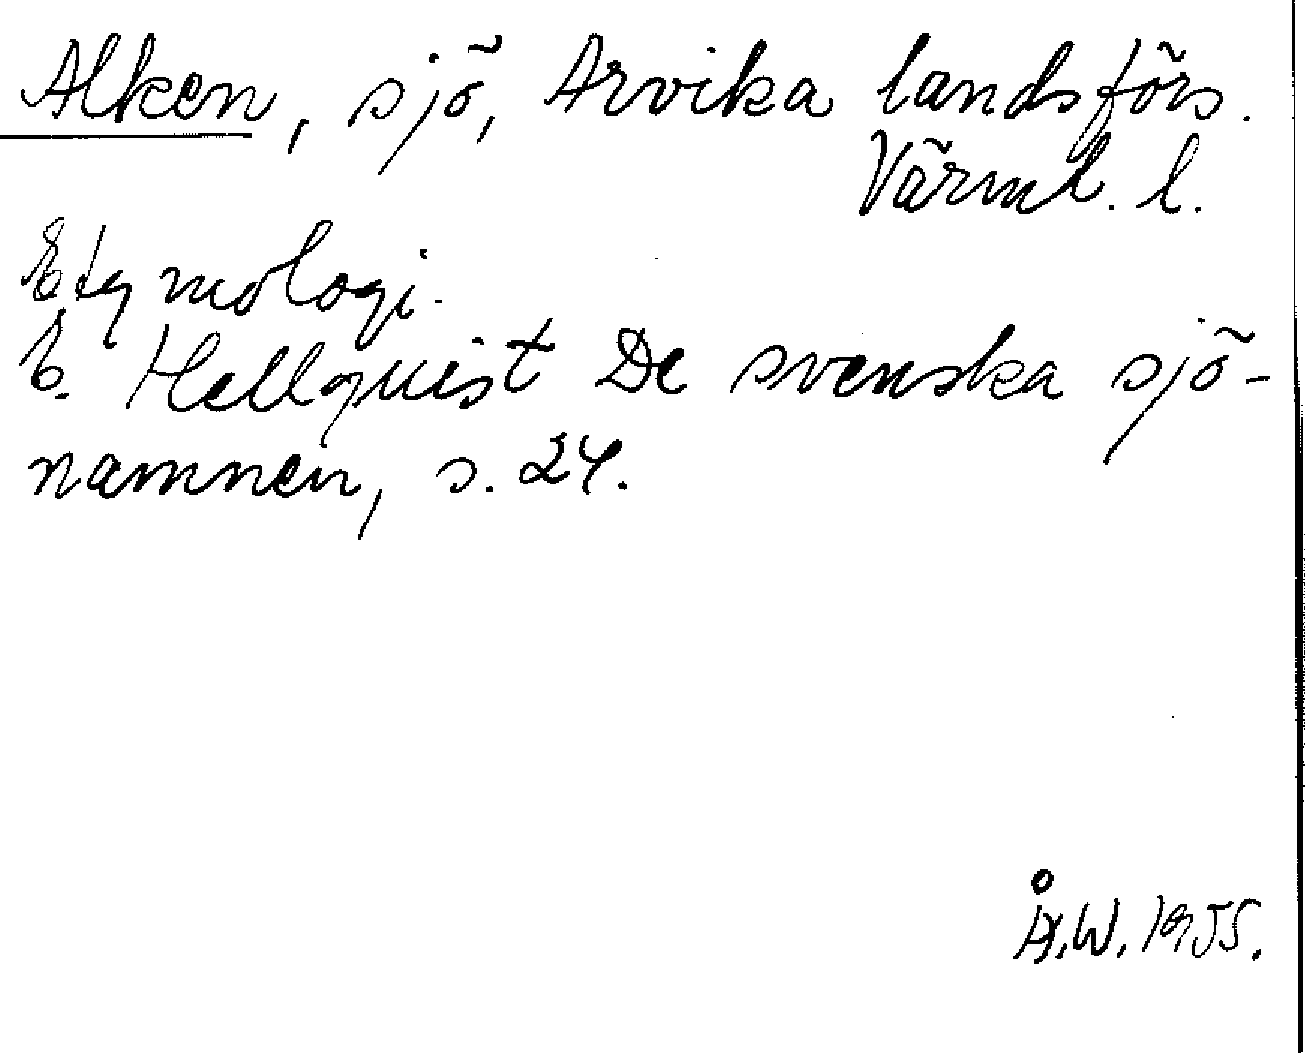 Alken, sjö, Arvika landsförs.
Värml. l.
Etymologi.
E. Hellquist De svenska sjö-
namnen, s. 24.
Å.W. 1955.